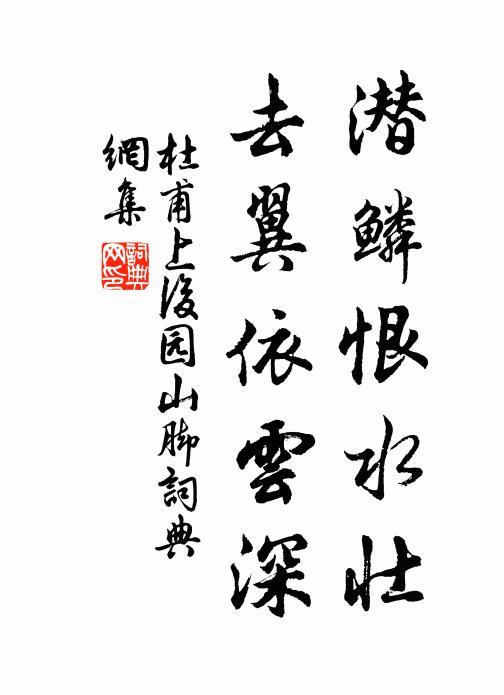 潜鳞恨水壮
去翼依雲深
杜甫上後园山脚詞典
網集
詞典网印